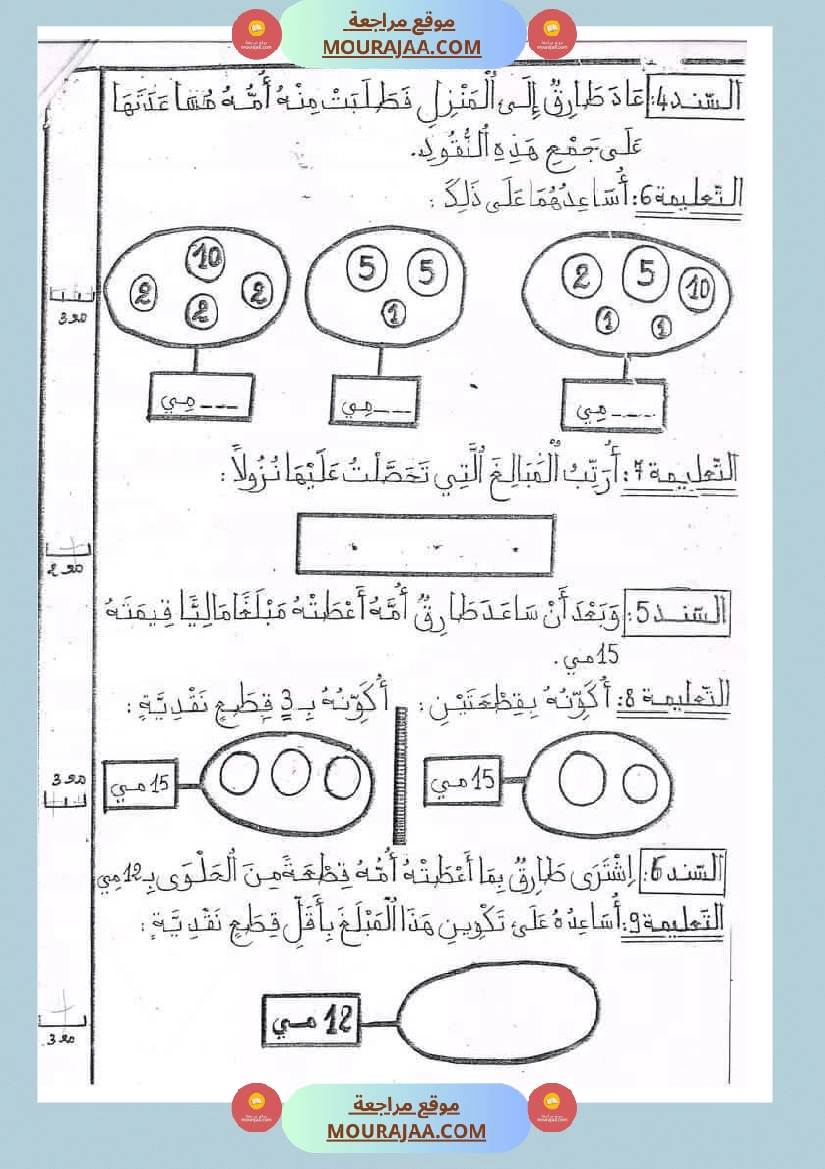 موقع مراجعة
MOURAJAA.COM
السّند4: عَادَ طَارِقٌ إِلَى الْمَنْزِلِ فَطَلَبَتْ مِنْهُ أُمُّهُ مُسَاعَدَتَهَا
عَلَى جَمْعِ هَذِهِ النُّقُودِ.
التّعليمة6: أُسَاعِدُهُمَا عَلَى ذَلِكَ:
2 5 10 1 1
5 5 1
10 2 2 2
---- مِي
---- مِي
--- مِي
3 مع
التّعليمة 7: أُرَتِّبُ الْمَبَالِغَ الَّتِي تَحَصَّلْتُ عَلَيْهَا نُزُولاً:
2 مع
السّند5: وَبَعْدَ أَنْ سَاعَدَ طَارِقٌ أُمَّهُ أَعْطَتْهُ مَبْلَغًا مَالِيًّا قِيمَتَهُ
15 مي.
التّعليمة 8: أُكَوِّنُهُ بِقِطْعَتَيْنِ: أُكَوِّنُهُ بِـ 3 قِطَعٍ نَقْدِيَّةٍ:
15 مي
15 مي
3 مع
السّند6: اِشْتَرَى طَارِقٌ بِمَا أَعْطَتْهُ أُمُّهُ قِطْعَةً مِنَ الْحَلْوَى بِـ 12 مِي
التّعليمة 9: أُسَاعِدُهُ عَلَى تَكْوِينِ هَذَا الْمَبْلَغِ بِأَقَلِّ قِطَعٍ نَقْدِيَّةٍ:
12 مي
3 مع
موقع مراجعة
MOURAJAA.COM